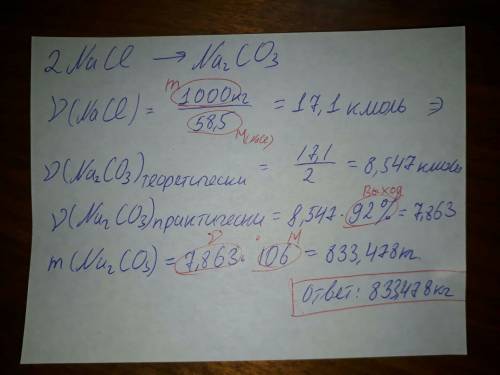 2NaCl → Na₂CO₃
ν(NaCl) = m 1000кг / 58,5 M(NaCl) = 17,1 кмоль ⇒
ν(Na₂CO₃)теоретически = 17,1 / 2 = 8,547 кмоль
ν(Na₂CO₃)практически = 8,547 · 92% выход = 7,863
m(Na₂CO₃) = 7,863 ν · 106 M = 833,478кг
Ответ: 833,478кг